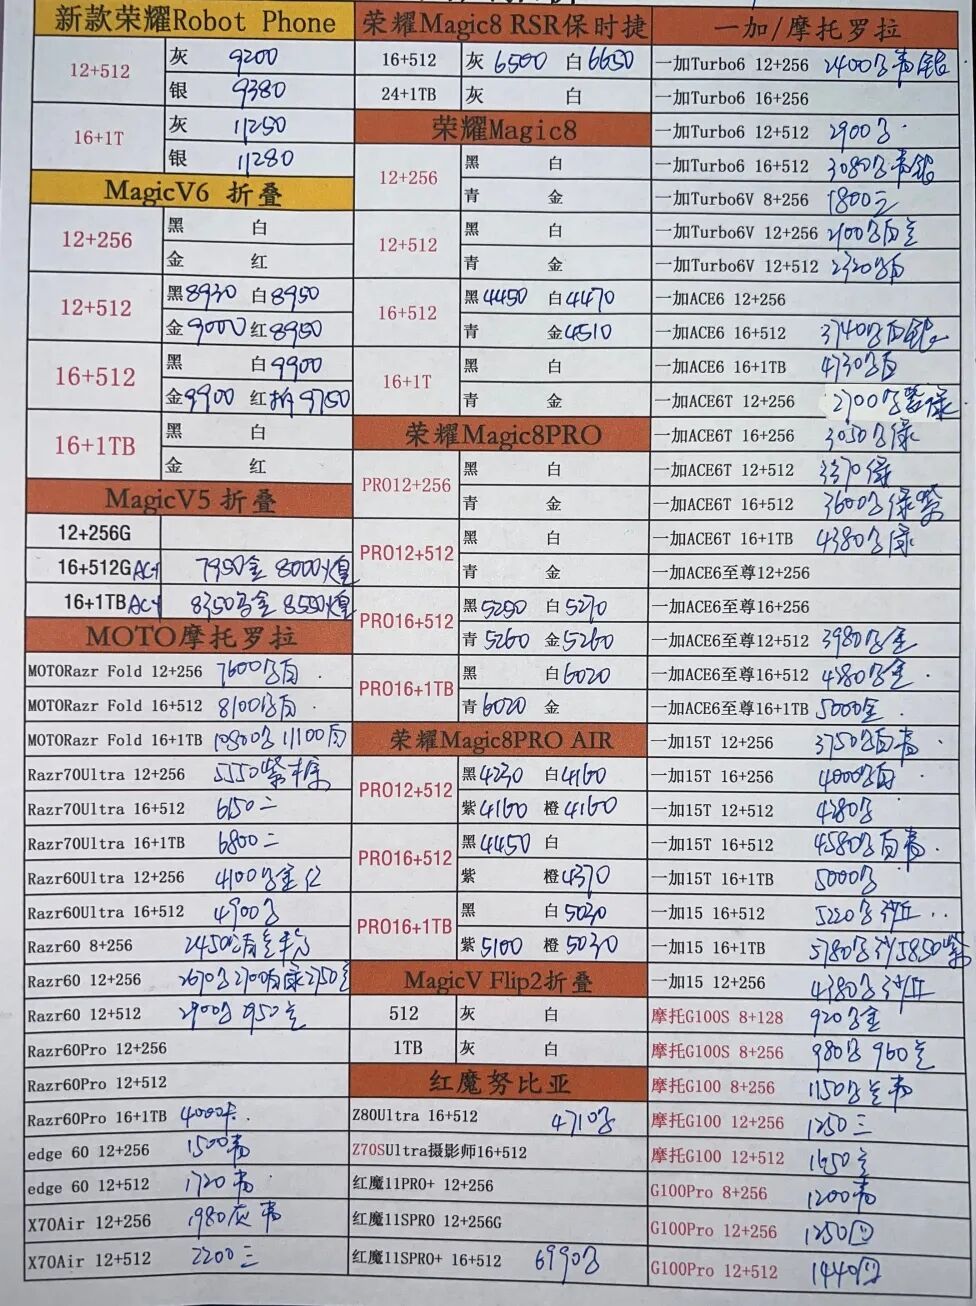 新款荣耀Robot Phone
12+512
灰 9200
银 9380
16+1T
灰 11250
银 11280
MagicV6 折叠
12+256
黑 白
金 红
12+512
黑8930 白8950
金9000 红8950
16+512
黑 白9900
金9900 红拆9750
16+1TB
黑 白
金 红
MagicV5 折叠
12+256G
16+512G AC+ 7950金 8000
16+1TB AC+ 8350 金 8550
MOTO摩托罗拉
MOTORazr Fold 12+256 7600
MOTORazr Fold 16+512 8100
MOTORazr Fold 16+1TB 10800 11100
Razr70Ultra 12+256 5550紫
Razr70Ultra 16+512 6150二
Razr70Ultra 16+1TB 6800二
Razr60Ultra 12+256 4100
Razr60Ultra 16+512 4900
Razr60 8+256 2450
Razr60 12+256 2670 2700 绿2750
Razr60 12+512 2900
Razr60Pro 12+256
Razr60Pro 12+512
Razr60Pro 16+1TB 4000
edge 60 12+256 1500青
edge 60 12+512 1720青
X70Air 12+256 1980灰青
X70Air 12+512 2200三
荣耀Magic8 RSR保时捷
16+512 灰6500 白6650
24+1TB 灰 白
荣耀Magic8
12+256
黑 白
青 金
12+512
黑 白
青 金
16+512
黑4450 白4470
青 金4510
16+1T
黑 白
青 金
荣耀Magic8PRO
PRO12+256
黑 白
青 金
PRO12+512
黑 白
青 金
PRO16+512
黑5250 白5270
青5260 金5260
PRO16+1TB
黑 白6020
青6020 金
荣耀Magic8PRO AIR
PRO12+512
黑4230 白4160
紫4160 橙4160
PRO16+512
黑4450 白
紫 橙4370
PRO16+1TB
黑 白5030
紫5100 橙5030
MagicV Flip2折叠
512 灰 白
1TB 灰 白
红魔努比亚
Z80Ultra 16+512 4710
Z70SUltra摄影师16+512
红魔11PRO+ 12+256
红魔11SPRO 12+256G
红魔11SPRO+ 16+512 6990
一加/摩托罗拉
一加Turbo6 12+256 2400
一加Turbo6 16+256
一加Turbo6 12+512 2900
一加Turbo6 16+512 3080
一加Turbo6V 8+256 1800三
一加Turbo6V 12+256 2100
一加Turbo6V 12+512 2320
一加ACE6 12+256
一加ACE6 16+512 3740
一加ACE6 16+1TB 4730
一加ACE6T 12+256 2700
一加ACE6T 16+256 3050 绿
一加ACE6T 12+512 3370绿
一加ACE6T 16+512 3600 绿紫
一加ACE6T 16+1TB 4380 绿
一加ACE6至尊12+256
一加ACE6至尊16+256
一加ACE6至尊12+512 3980 金
一加ACE6至尊16+512 4280 金
一加ACE6至尊16+1TB 5000金
一加15T 12+256 3750
一加15T 16+256 4000
一加15T 12+512 4280
一加15T 16+512 4580
一加15T 16+1TB 5000
一加15 16+512 5220
一加15 16+1TB 5780 5850紫
一加15 12+256 4380
摩托G100S 8+128 920 金
摩托G100S 8+256 980 960
摩托G100 8+256 1150
摩托G100 12+256 1250三
摩托G100 12+512 1650
G100Pro 8+256 1200青
G100Pro 12+256 1250
G100Pro 12+512 1440